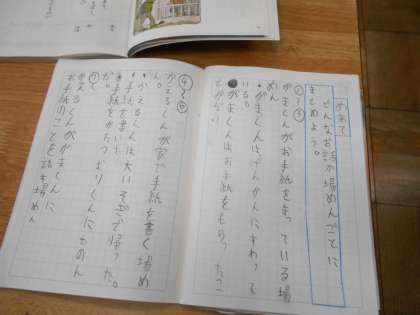 めあて
どんなお話か場めんごとに
まとめよう。
①〜③
がまくんがお手紙をまっている場
めん
・がまくんはげんかんにすわって
いる。
がまくんはお手紙をもらったこ
とがない
④〜⑥
かえるくんが家で手紙を書く場め
ん。
・かえるくんは大いそぎで帰った。
・手紙を書いた
お手紙をかたつむりくんにたのん
だ。
⑦
かえるくんががまくんに
お手紙のことを話す場めん